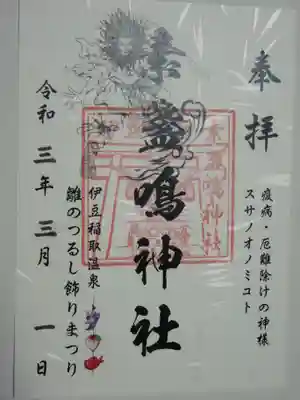 奉拝
疫病・厄難除けの神様
スサノオノミコト
素盞鳴神社
伊豆稲取温泉
雛のつるし飾りまつり
令和三年三月一日